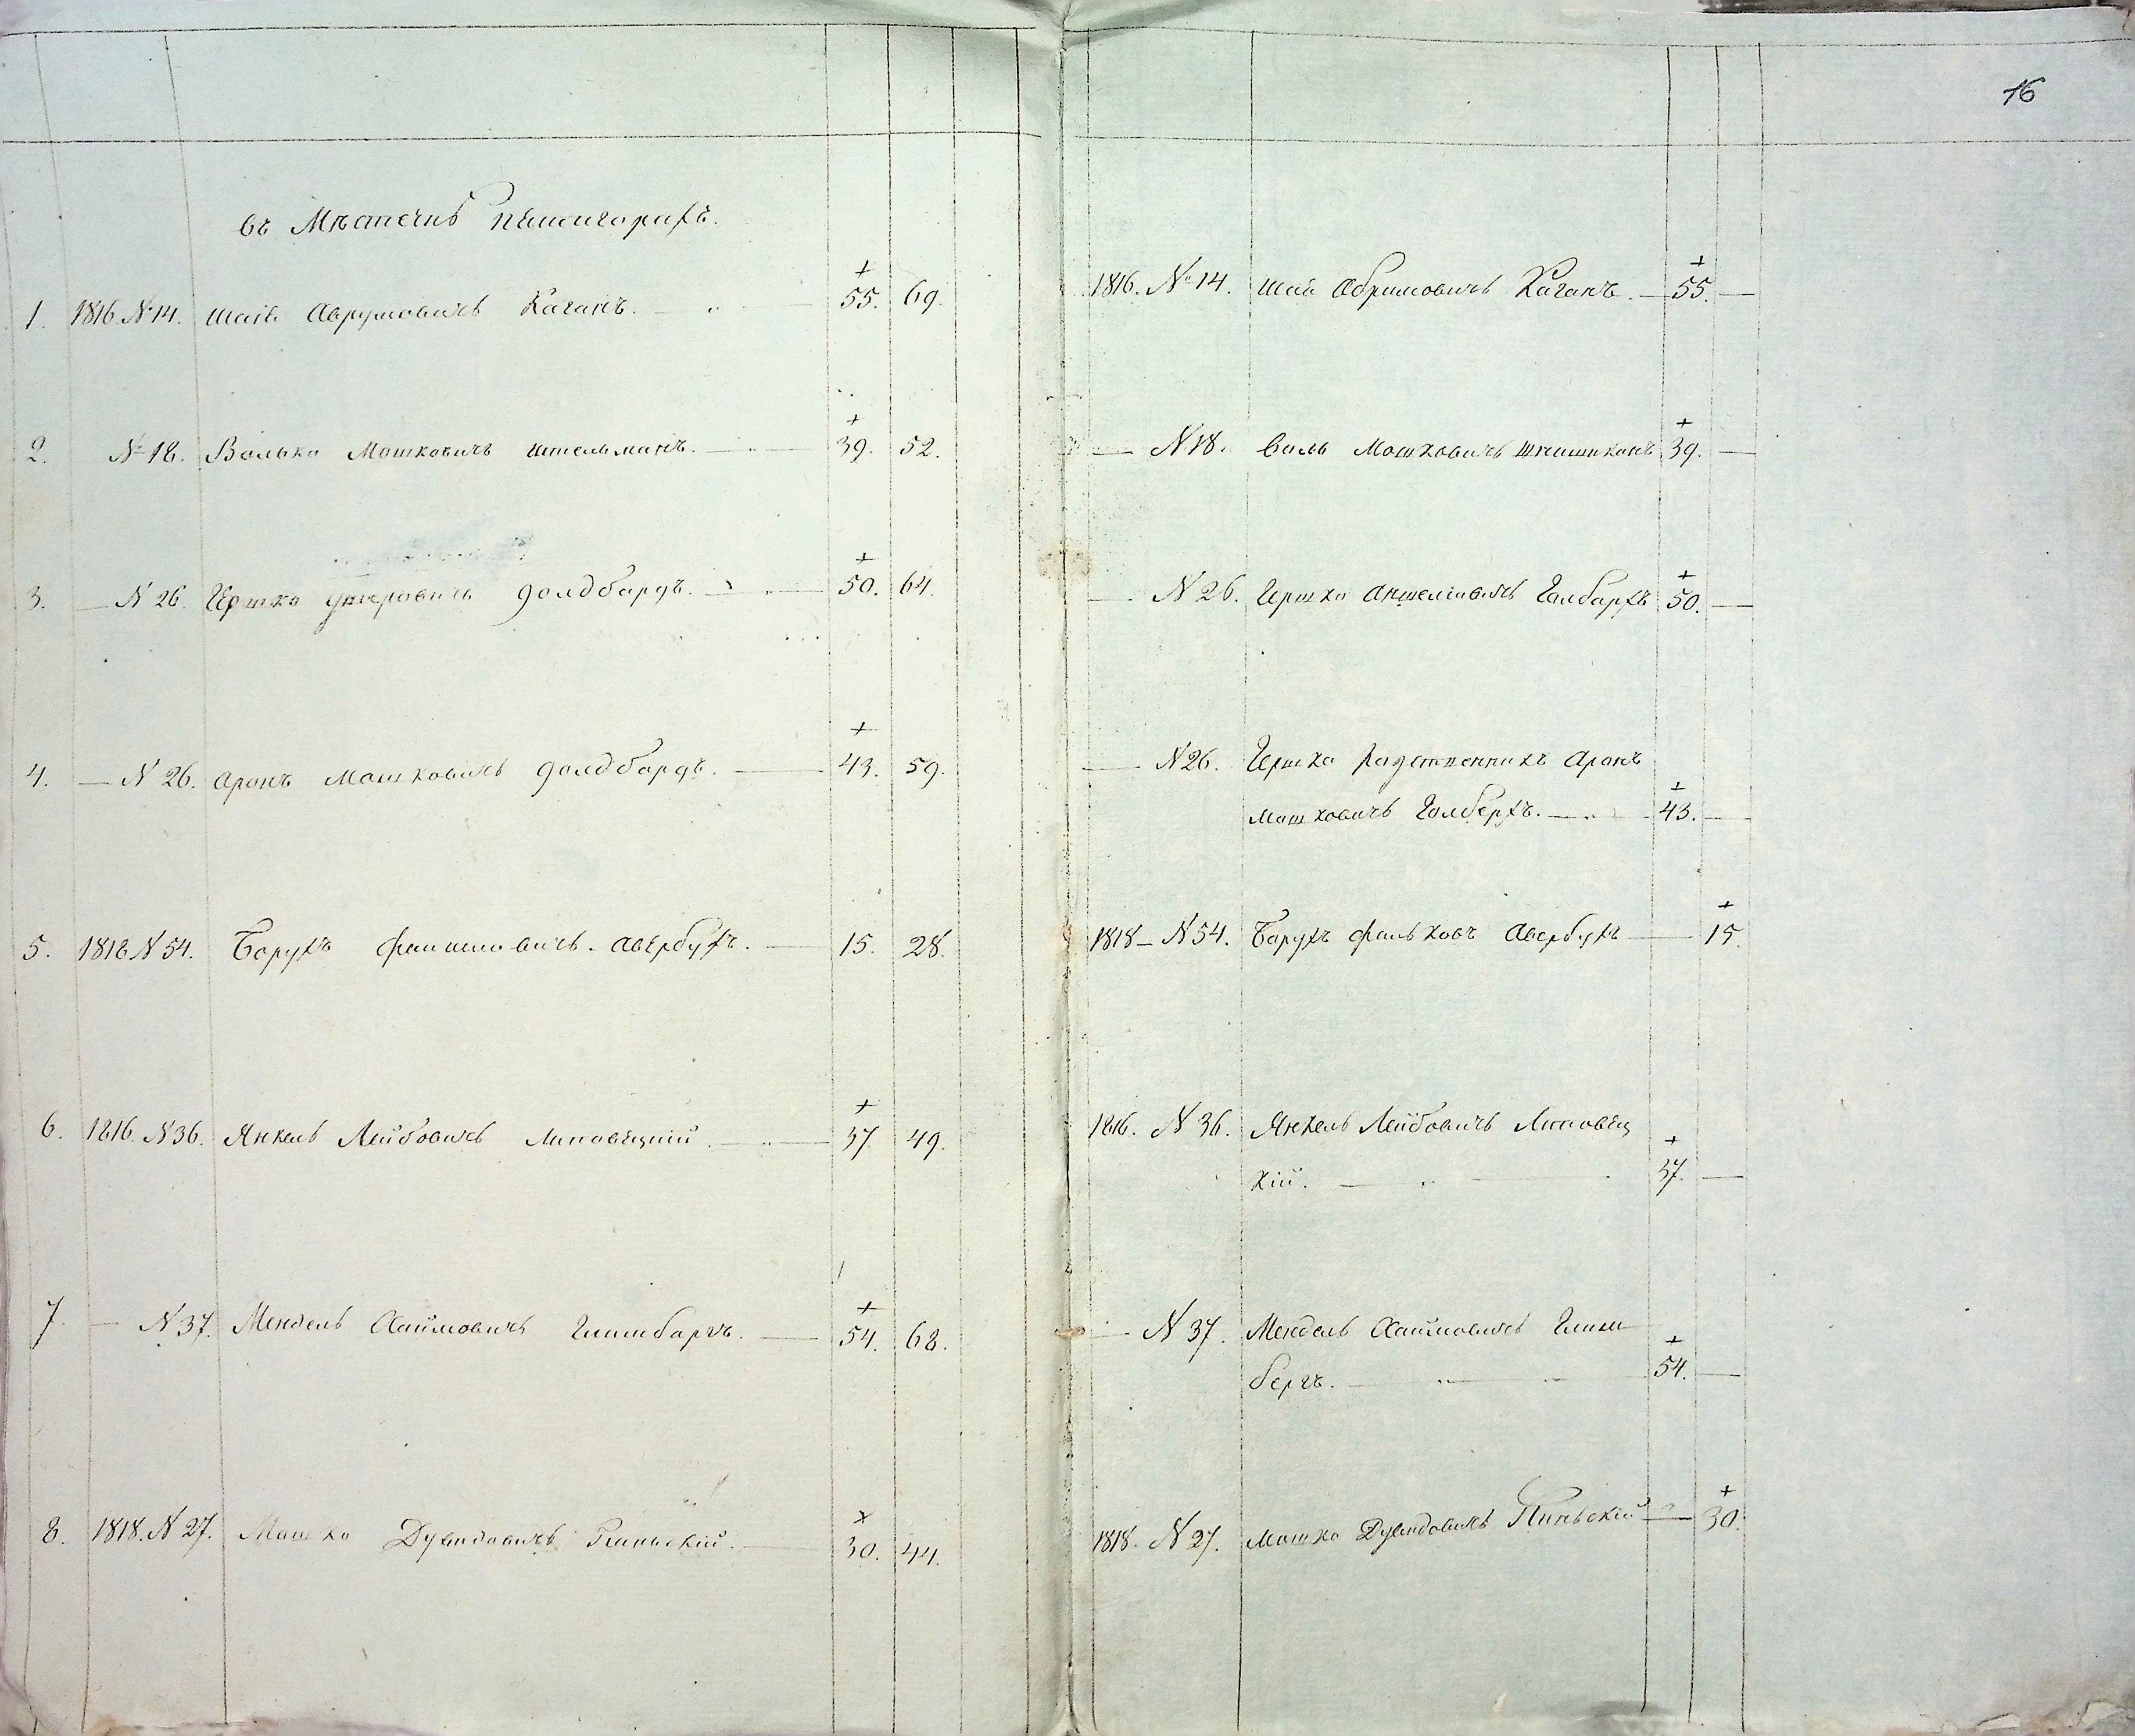 16
въ Мѣстечкѣ Пятигорахъ.
1. 1816 №14. Шаiя Аврумовичъ Каганъ. 55. 69.
2. №18. Волько Мошковичъ Штельманъ. 39. 52.
3. — №26. Гершко Голдбаргъ. 50. 64.
4. — №26. Аронъ Мошковичъ Голдбаргъ. 43. 59.
5. 1818 №54. Борухъ Авербухъ. 15. 28.
6. 1816. №36. Янкель Лейбовичъ Липовецкiй. 37. 49.
7. — №37. Мендель Хаимовичъ 54. 68.
8. 1818. №27. Мошко Дувидовичъ 30. 44.
1816. №14. Шая Абрамовичъ Каганъ. — 55. —
— №18. Воль Мошковичъ 39. —
— №26. Гершко Голбархъ 50. —
— №26. Гершка родственникъ Аронъ
Мошковичъ Голберхъ. — 43. —
1818 — №54. Барухъ Фальковъ Авербухъ — 15.
1816. №36. Янкель Лейбовичъ Липовец
кiй. — 37. —
— №37. Мендель Хаимовичъ
бергъ. — 54. —
1818. №27. Мошко Дувидовичъ — 30.